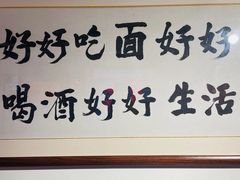 好好吃面好好
喝酒好好生活